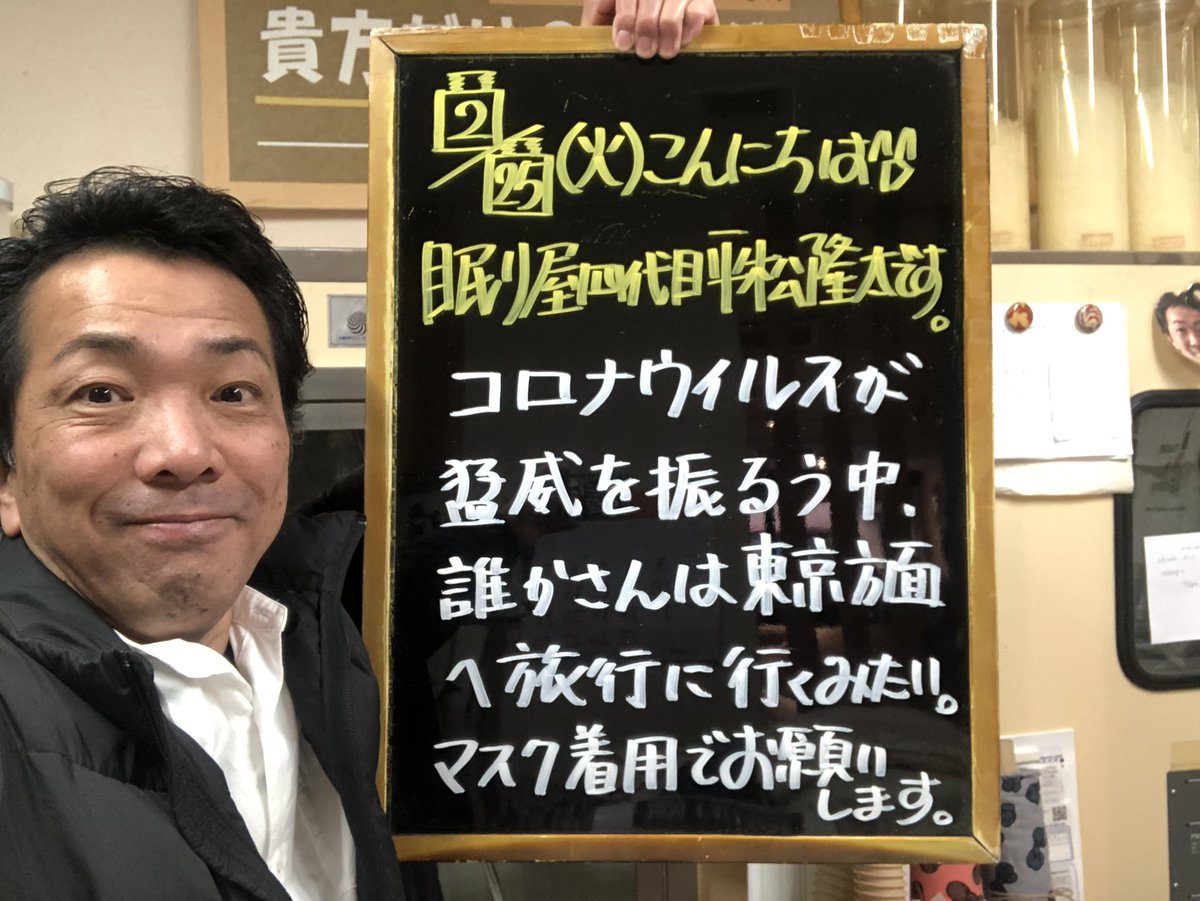 貴方だけの
2/25(火)こんにちは!!
眠り屋四代目平松隆太です。
コロナウイルスが
猛威を振るう中、
誰かさんは東京方面
へ旅行に行くみたい。
マスク着用でお願い
します。